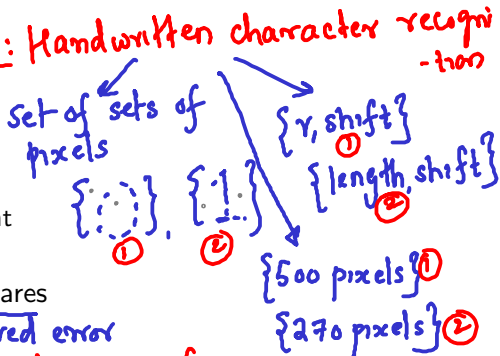 : Handwritten character recogni
-tion
set of sets of
pixels
{r, shift}
①
{length, shift}
②
{ }, { }
① ②
nt
{500 pixels} ①
ares
{270 pixels} ②
red error